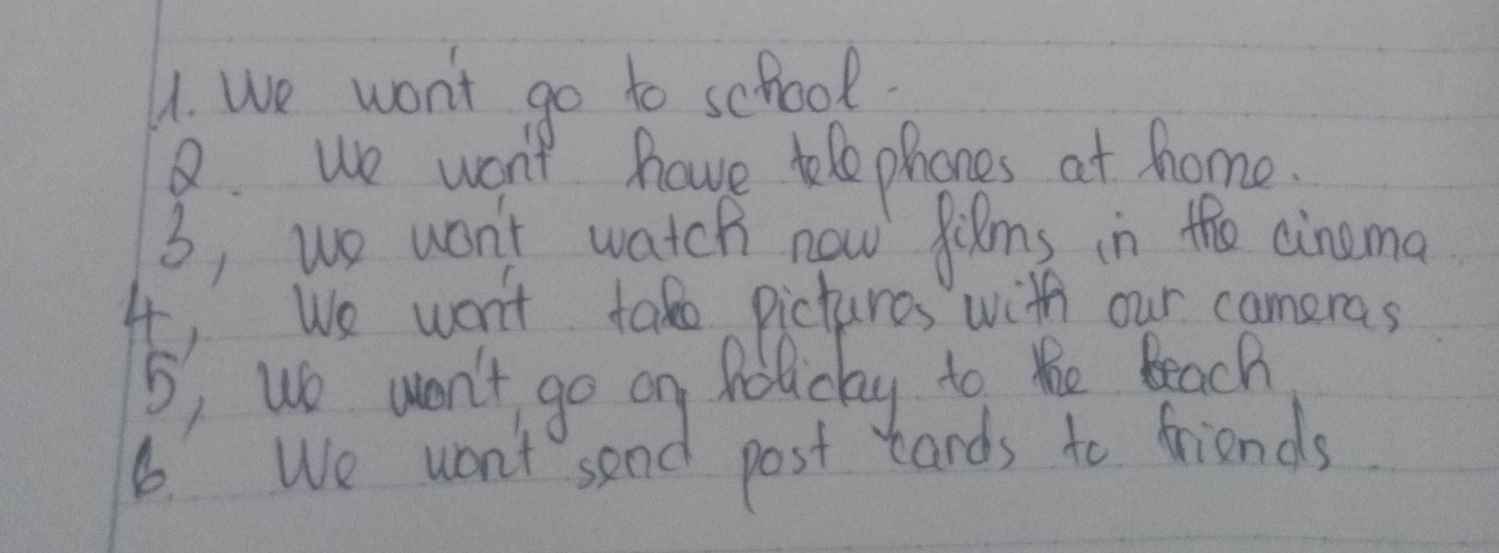 1. We won't go to school.
2. We won't have telephones at home.
3, We won't watch new films in the cinema.
4, We won't take pictures with our cameras.
5, We won't go on holiday to the beach
6. We won't send post cards to friends.